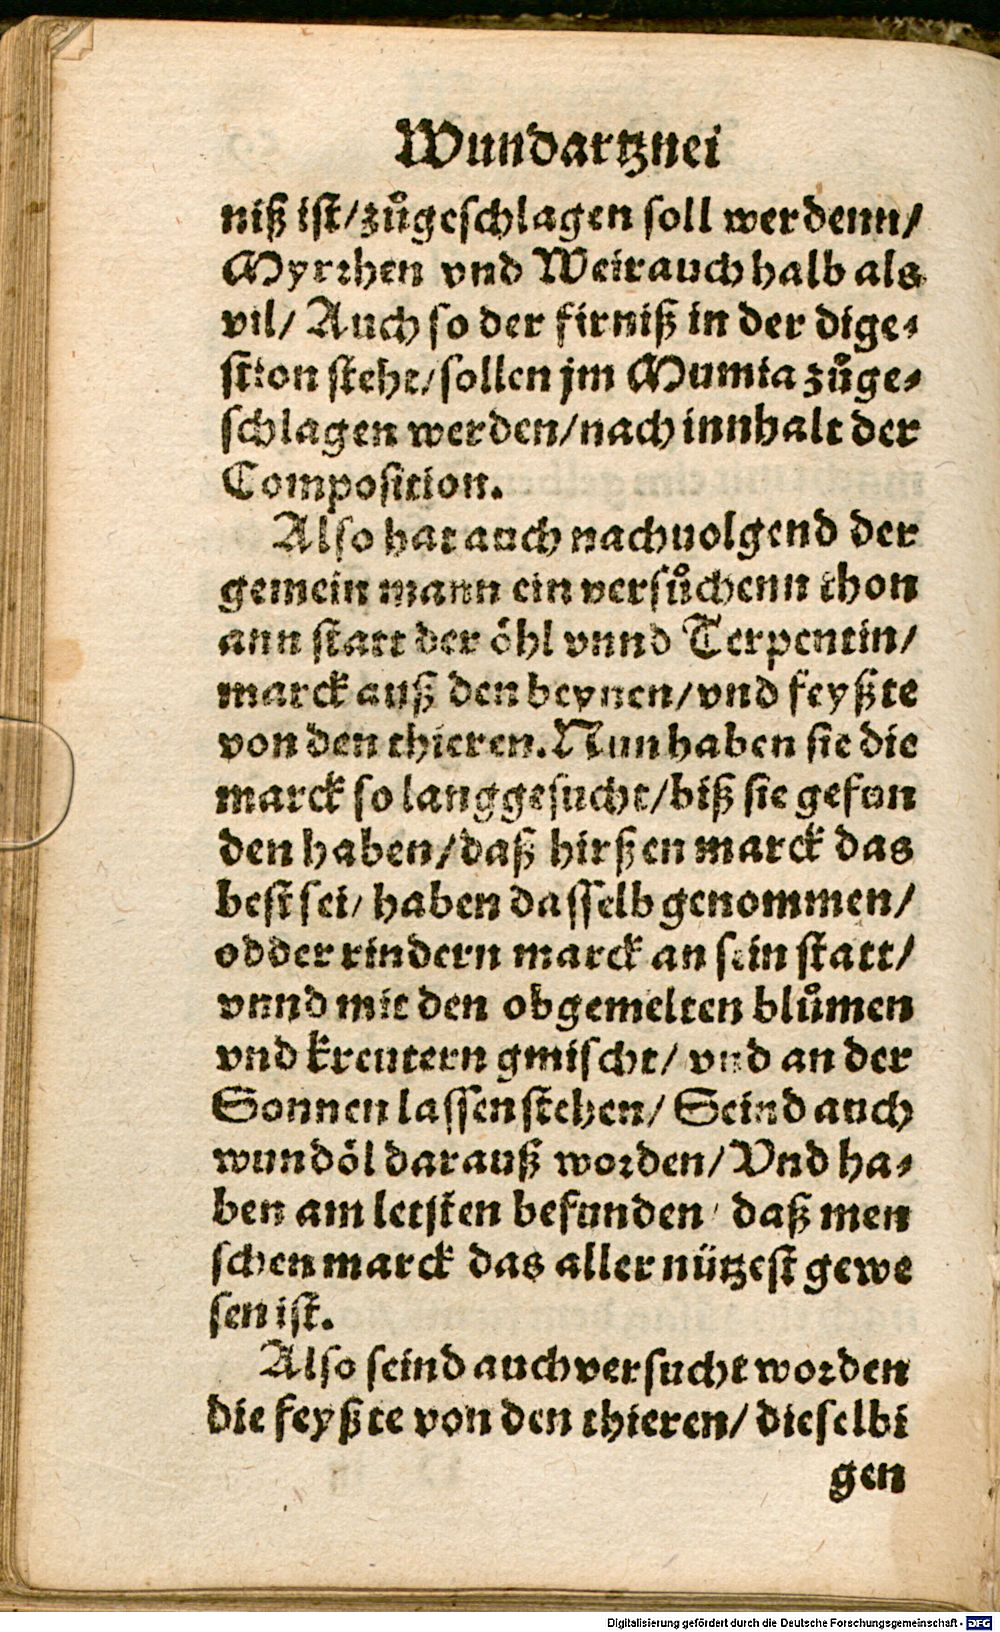 Wundartznei
niß ist/zůgeschlagen soll werdenn/
Myrrhen vnd Weirauch halb als
vil/ Auch so der firniß in der dige-
stion stehe/sollen jm Mumia zůge-
schlagen werden/nach innhalt der
Composition.
Also hat auch nachuolgend der
gemein mann ein versůchenn thon
ann statt der öhl vnnd Terpentin/
marck auß den beynen/vnd feyßte
von den thieren. Nun haben sie die
marck so lang gesucht/biß sie gefun
den haben/daß hirßen marck das
best sei/ haben dasselb genommen/
odder rindern marck an sein statt/
vnnd mit den obgemelten blůmen
vnd kreutern gmischt/ vnd an der
Sonnen lassen stehen/ Seind auch
wundöl darauß worden/ Vnd ha-
ben am letsten befunden/ daß men
schen marck das aller nützest gewe
sen ist.
Also seind auch versucht worden
die feyßte von den thieren/ dieselbi
gen
Digitalisierung gefördert durch die Deutsche Forschungsgemeinschaft - DFG